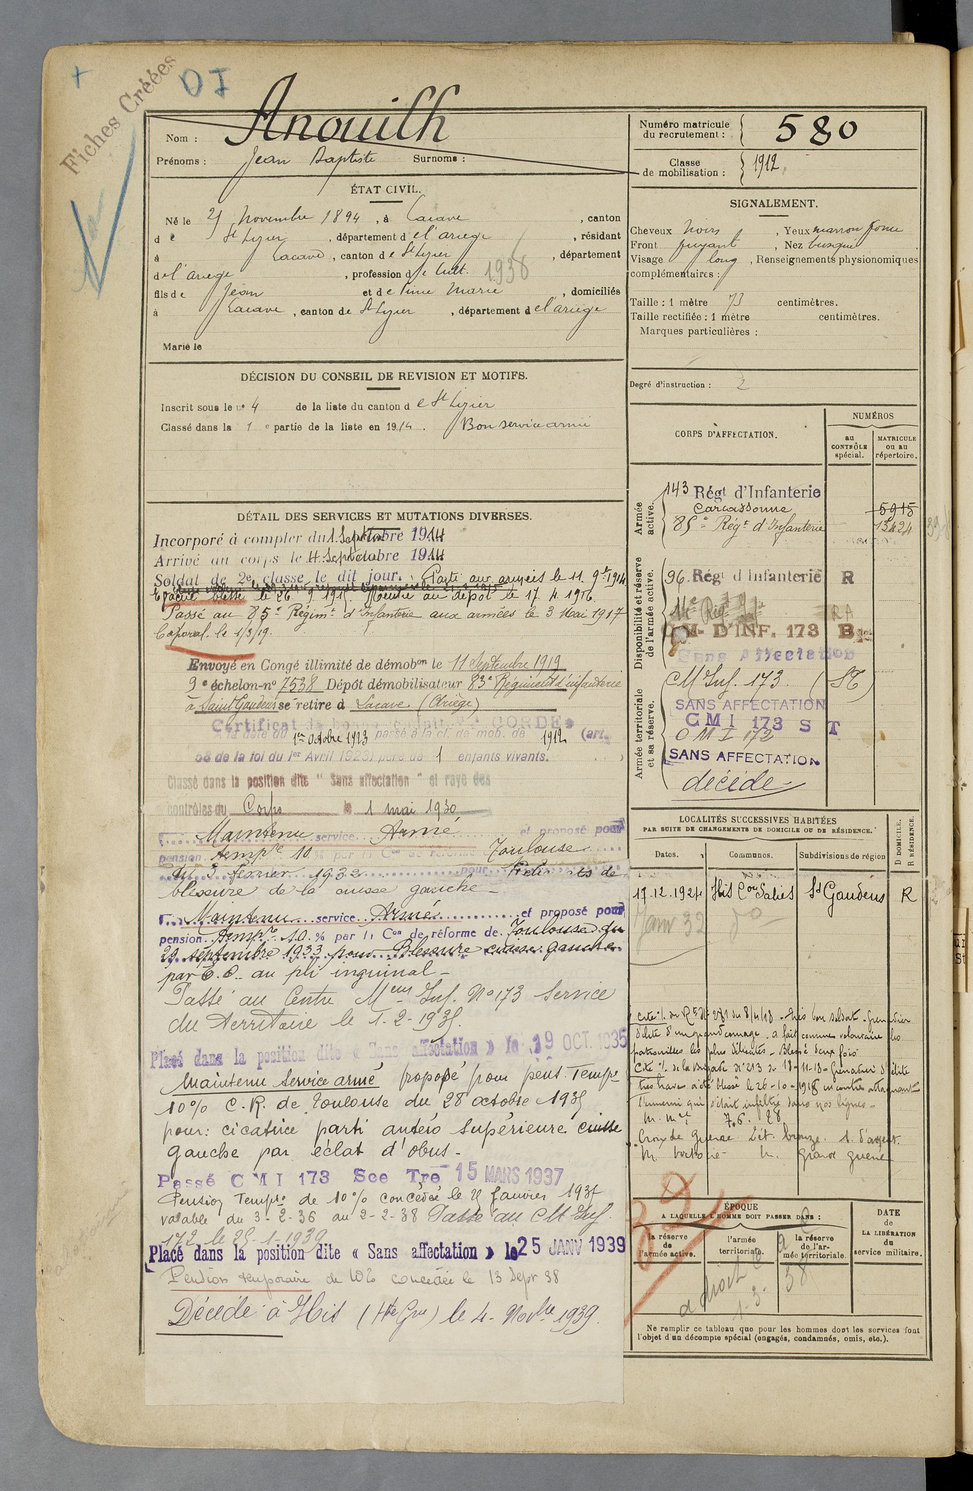 Fiches Créées
DI
Nom : Anouilh
Prénoms : Jean Baptiste Surnoms :
Numéro matricule du recrutement : 580
Classe de mobilisation : 1912
ÉTAT CIVIL.
Né le 21 Novembre 1894, à Lacave, canton
de St Lizier, département de l'ariège, résidant
à Lacave, canton de St Lizier, département
de l'ariège, profession de cult. 1938
fils de Jean et de Marie, domiciliés
à Lacave, canton de St Lizier, département de l'ariège
Marié le
SIGNALEMENT.
Cheveux noirs, Yeux marron foncé
Front fuyant, Nez busqué
Visage long, Renseignements physionomiques
complémentaires :
Taille : 1 mètre 73 centimètres.
Taille rectifiée : 1 mètre centimètres.
Marques particulières :
Degré d'instruction : 2
DÉCISION DU CONSEIL DE REVISION ET MOTIFS.
Inscrit sous le n° 4 de la liste du canton de St Lizier
Classé dans la 1e partie de la liste en 1914. Bon service armé
DÉTAIL DES SERVICES ET MUTATIONS DIVERSES.
Incorporé à compter du 1 Septembre 1914
Arrivé au corps le 4 Septembre 1914
Soldat de 2e classe le dit jour. Parti aux armées le 11 9bre 1914
blessé le 26 9 191 . Rentré au dépôt le 17 4 1916.
Passé au 85e Régimt d'Infanterie aux armées le 3 Mai 1917
Caporal le 1/3/19.
Envoyé en Congé illimité de démobon le 11 Septembre 1919
9e échelon-n° 7538 Dépôt démobilisateur 83e Régiment d'infanterie
à Saint Gaudens se retire à Lacave (Ariège)
Certificat de bonne conduite ACCORDÉ
à la date du 1er octobre 1923 passé à la cl. de mob. de 1912 (art.
58 de la loi du 1er Avril 1923) père de 1 enfants vivants.
Classé dans la position dite " Sans affectation " et rayé des
contrôles du Corps le 1 mai 1930
Maintenu service Armé et proposé pour
pension temp.re 10 % par la Con de réforme Toulouse
du 3 février 1932 pour
blessure de la cuisse gauche
Maintenu service Armé et proposé pour
pension temp.re 10 % par la Con de réforme de Toulouse du
29 septembre 1933 pour Blessure cuisse gauche
par E.O. au pli inguinal
Passé au Centre Meur Inf. N° 173 Service
du Territoire le 1-2-1935.
Placé dans la position dite « Sans affectation » le 19 OCT. 1935
Maintenu Service armé proposé pour pens. Tempe
10% C. R. de Toulouse du 28 octobre 1935
pour: cicatrice parti antéro supérieure cuisse
gauche par éclat d'obus.
Passé C M I 173 Sce Tre 15 MARS 1937
Pension Tempre de 10% concédée le 21 janvier 1937
valable du 3-2-36 au 2-2-38 Passé au CM Inf
172 le 25-1-1939
Placé dans la position dite « Sans affectation » le 25 JANV 1939
Pension temporaire de 10% concédée le 13 Sept 38
Décédé à His (Hte Gne) le 4 Novbre 1939.
CORPS D'AFFECTATION.
NUMÉROS
au CONTRÔLE spécial.
MATRICULE ou au répertoire.
Armée active.
143 Régt d'Infanterie 5915
Carcassonne
85e Régt d'Infanterie 13424
Disponibilité et réserve de l'armée active.
96. Régt d'Infanterie R
CM- D'INF. 173 Bis
Sans Affectation
Armée territoriale et sa réserve.
CM Inf. 173. (ST)
SANS AFFECTATION
CMI 173 ST
CMI 172
SANS AFFECTATION
décédé
LOCALITÉS SUCCESSIVES HABITÉES
PAR SUITE DE CHANGEMENTS DE DOMICILE OU DE RÉSIDENCE.
D DOMICILE. R RÉSIDENCE.
Dates.
Communes.
Subdivisions de région
11.12.1924 His Con Salies St Gaudens R
Janv 32 do
d'élite d'un grand courage, a fait comme volontaire les
patrouilles les plus délicates. Blessé deux fois
Cité à l'o. de la Brigade N° 213 du 18-11-18. Grenadier d'élite
très brave a été blessé le 26-10-1918 en contre attaquant
l'ennemi qui s'était infiltré dans nos lignes.
Croix de Guerre 2 ét. bronze. 1 d'argent.
ÉPOQUE
A LAQUELLE L'HOMME DOIT PASSER DANS :
la réserve de l'armée active.
l'armée territoriale.
la réserve de l'armée territoriale.
DATE de LA LIBÉRATION du service militaire.
Ne remplir ce tableau que pour les hommes dont les services font
l'objet d'un décompte spécial (engagés, condamnés, omis, etc.).